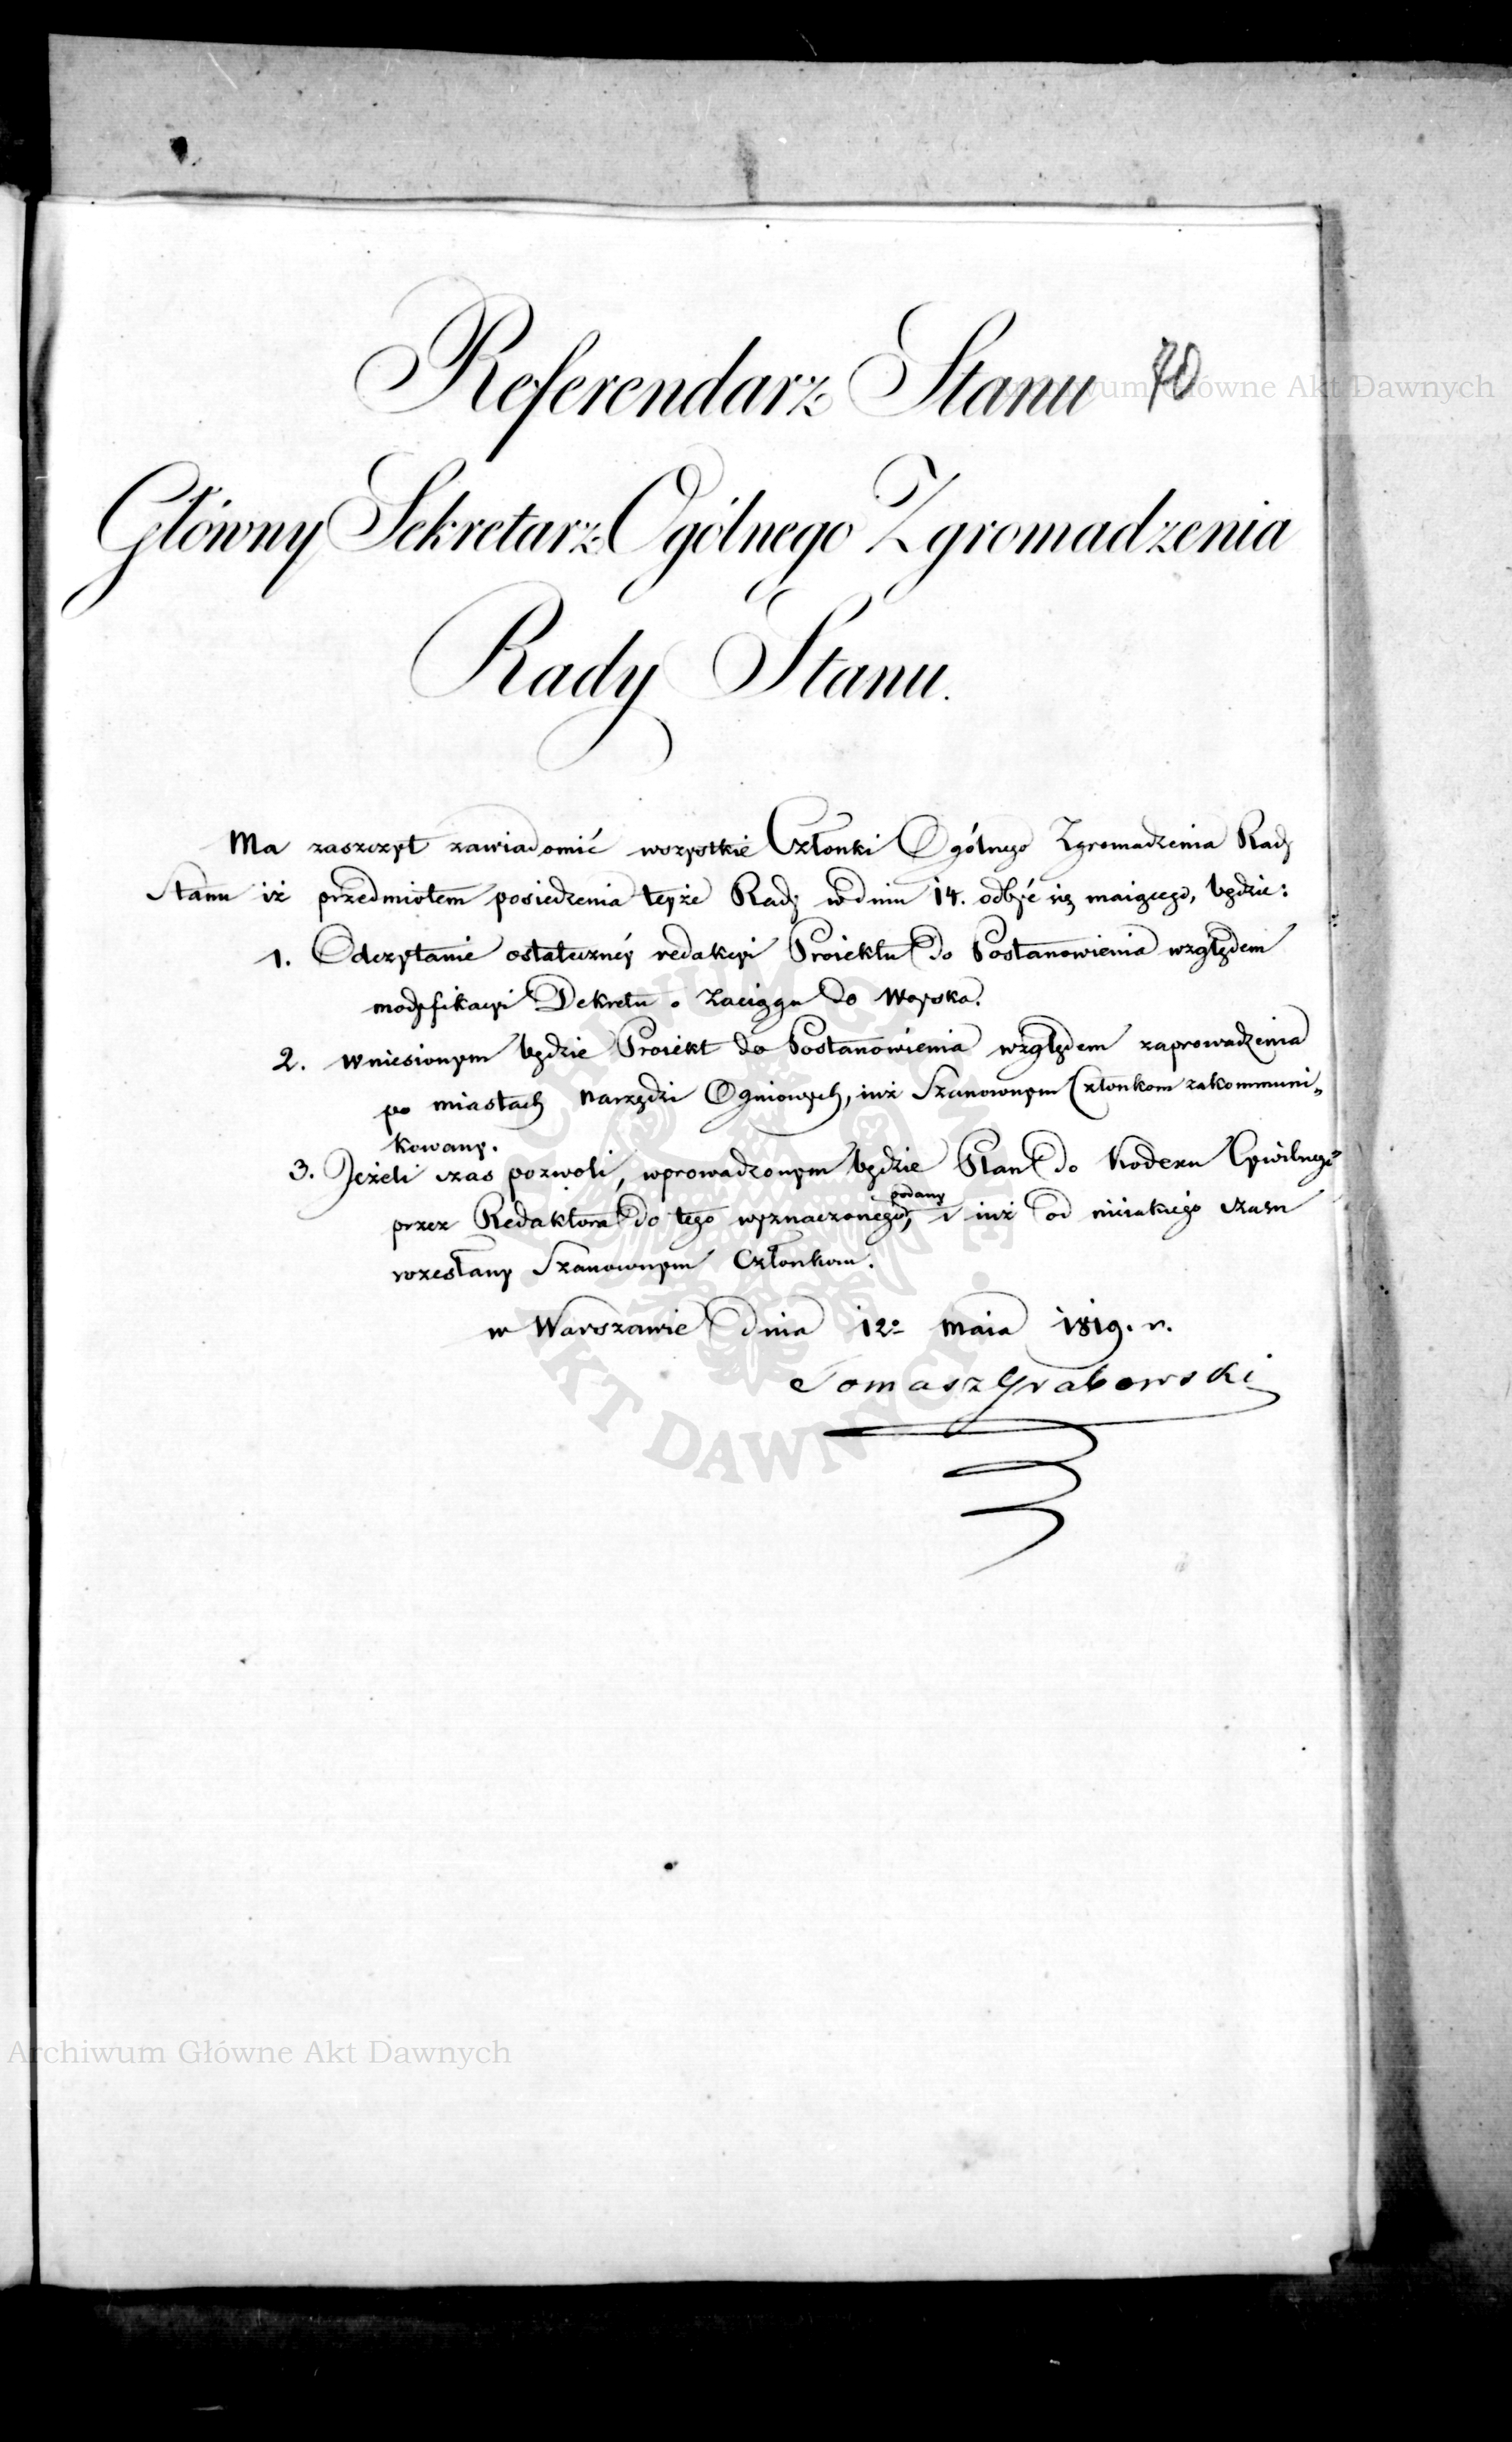 Referendarz Stanu 70
Główny Sekretarz Ogólnego Zgromadzenia
Rady Stanu.
Ma zaszczyt zawiadomić wszystkie Członki Ogólnego Zgromadzenia Rady
Stanu iż przedmiotem posiedzenia teyże Rady w dniu 14. odbyć się maiącego, będzie:
1. Odczytanie ostateczney redakcyi Proiektu do Postanowienia względem
modyfikacyi Dekretu o Zaciągu do Woyska.
2. wniesionym będzie Proiekt do Postanowienia względem zaprowadzenia
po miastach Narzędzi Ogniowych, iuż Szanownym Członkom zakommuni„
kowany.
3. Jeżeli czas pozwoli, wprowadzonym będzie Plan do Kodexu Cywilnego
podany
przez Redaktora do tego wyznaczonego, i iuż od nieiakiego czasu
rozesłany Szanownym Członkom.
w Warszawie dnia 12º maia 1819. r.
Tomasz Grabowski
Archiwum Główne Akt Dawnych
ARCHIWUM GŁÓWNE AKT DAWNYCH
Archiwum Główne Akt Dawnych